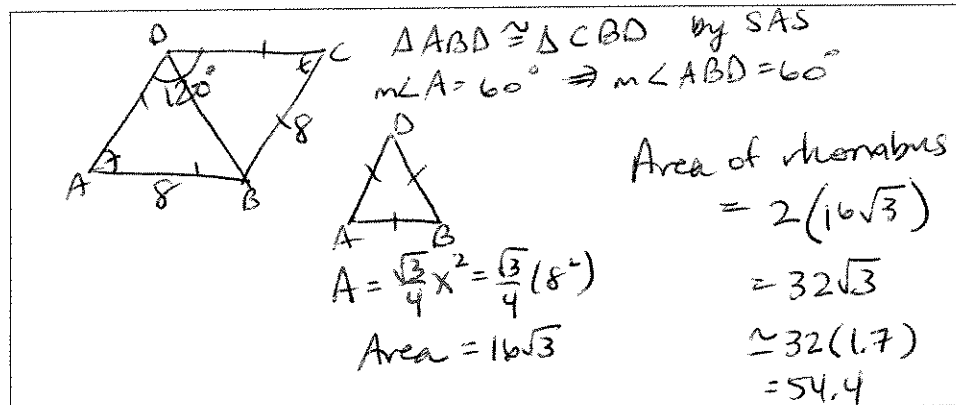 D
C
120°
8
A
8
B
ΔABD ≅ ΔCBD by SAS
m∠A = 60° ⇒ m∠ABD = 60°
D
A
B
A = √3/4 x² = √3/4 (8²)
Area = 16√3
Area of rhombus
= 2(16√3)
= 32√3
≅ 32(1.7)
= 54.4